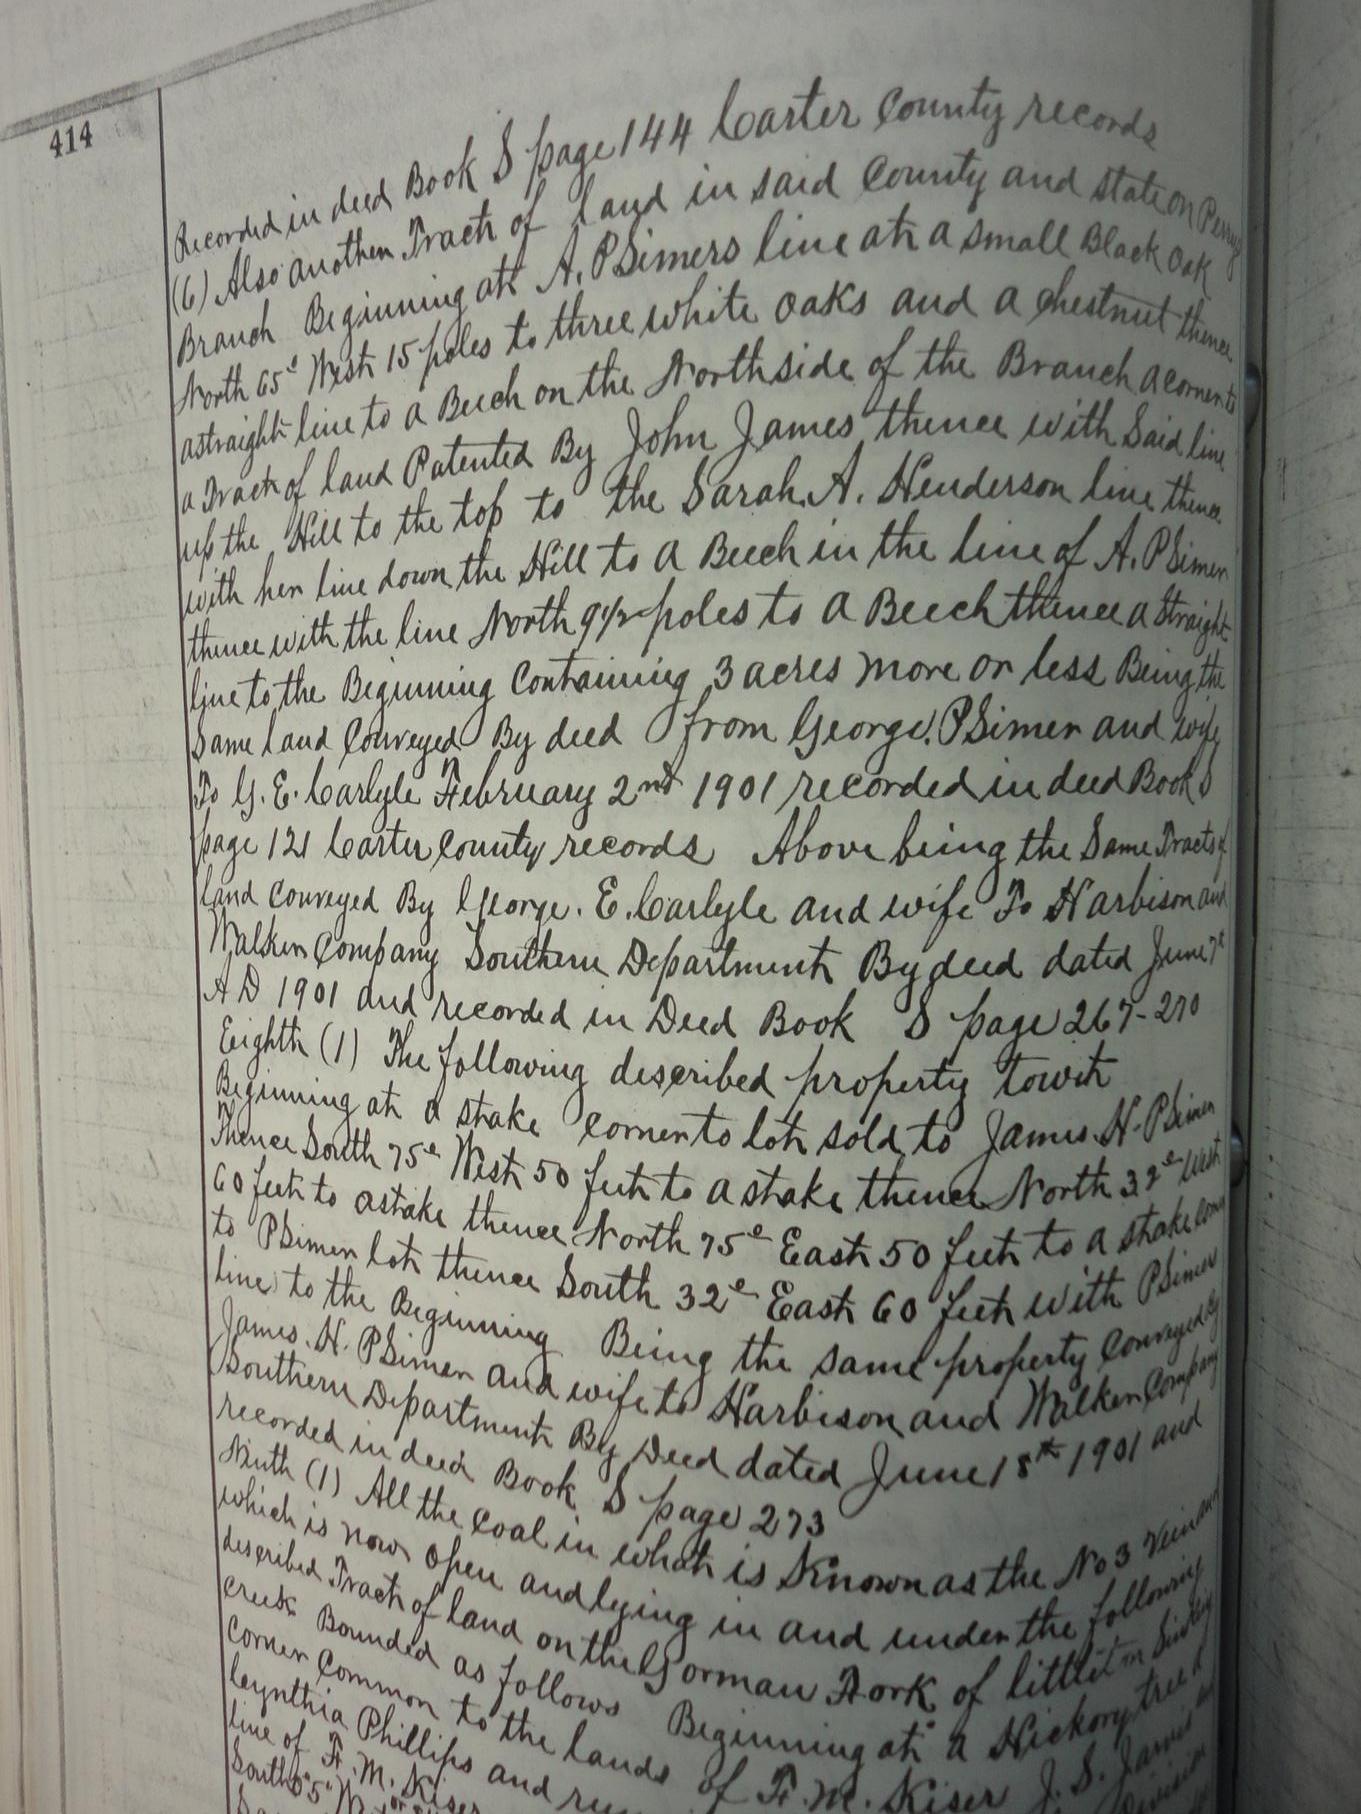 414
Recorded in deed Book S page 144 Carter County records
(6) Also another Tract of land in said County and state on Perry
Branch Beginning at A. PSimers line at a small Black Oak
North 65° West 15 poles to three white oaks and a chestnut thence
a straight line to a Beech on the North side of the Branch a corner to
a Tract of land Patented By John James thence with Said line
up the Hill to the top to the Sarah. A. Henderson line thence
with her line down the Hill to a Beech in the line of A. PSimer
thence with the line North 9½ poles to a Beech thence a Straight
line to the Beginning Containing 3 acres more or less Being the
same land Conveyed By deed from George. PSimer and wife
To G. E. Carlyle February 2nd 1901 recorded in deed Book S
page 121 Carter County records Above being the Same Tracts of
land conveyed By George. E. Carlyle and wife To Harbison and
Walker Company Southern Department By deed dated June 7th
A D 1901 and recorded in Deed Book S page 267-270
Eighth (1) The following described property towit
Beginning at a stake corner to lot sold to James. H. PSimer
Thence South 75° West 50 feet to a stake thence North 32° West
60 feet to a stake thence North 75° East 50 feet to a stake corner
to PSimer lot thence South 32° East 60 feet with PSimer
line to the Beginning Being the same property Conveyed by
James. H. PSimer and wife to Harbison and Walker Company
Southern Department By Deed dated June 18th 1901 and
recorded in deed Book S page 273
Ninth (1) All the coal in what is Known as the No 3 Vein and
which is now open and lying in and under the following
described Tract of land on the Gorman Fork of little Sinking
creek Bounded as follows Beginning at a Hickory tree
corner common to the lands of F. M. Kiser J. S. Jarvis and
Cynthia Phillips and division
line of F. M. Kiser
South